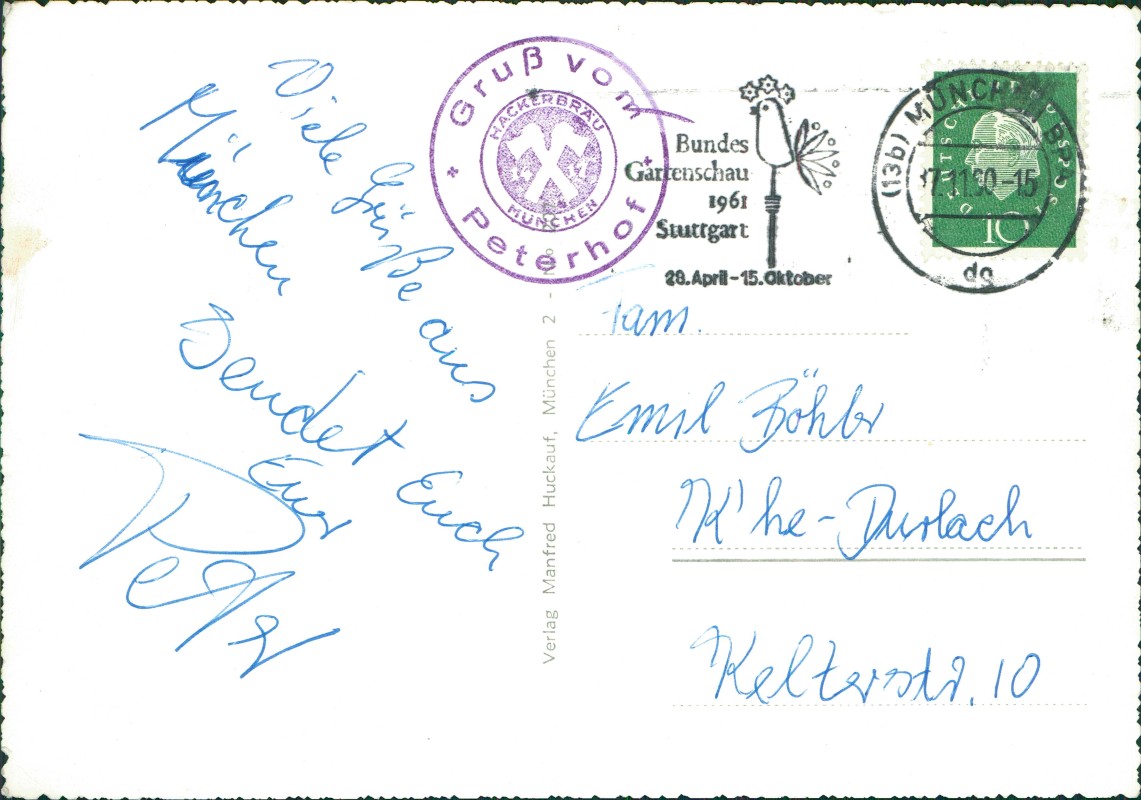 Viele Grüße aus
München
Sendet Euch
Euer
Peter
Gruß vom
Peterhof
HACKERBRÄU
MÜNCHEN
Bundes
Gartenschau
1961
Stuttgart
28. April - 15. Oktober
(13b) MÜNCHEN
-15
do
10
Fam.
Emil Böhler
K'he-Durlach
Kelterstr. 10
Verlag Manfred Huckauf, München 2